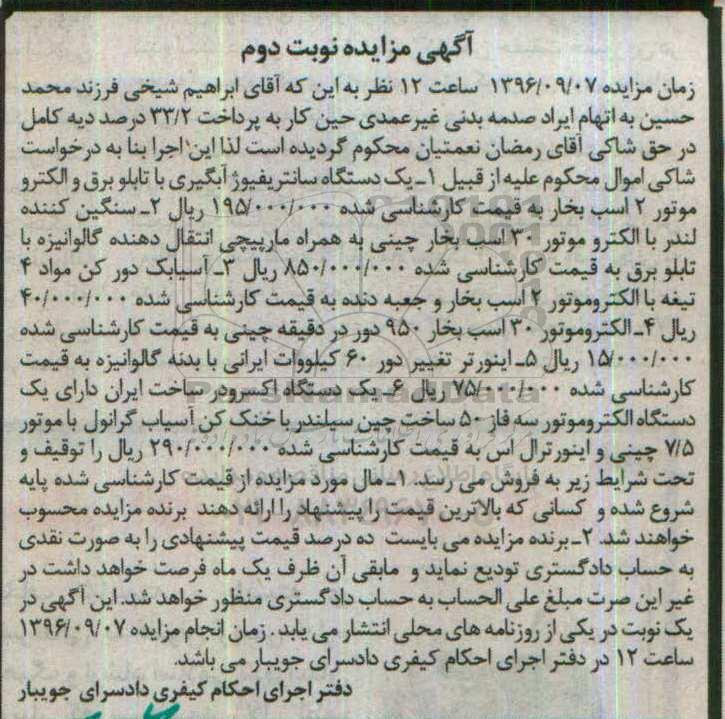 آگهی مزایده نوبت دوم
زمان مزایده ۱۳۹۶/۰۹/۰۷ ساعت ۱۲ نظر به این که آقای ابراهیم شیخی فرزند محمد
حسین به اتهام ایراد صدمه بدنی غیرعمدی حین کار به پرداخت ۳۳/۲ درصد دیه کامل
در حق شاکی آقای رمضان نعمتیان محکوم گردیده است لذا این اجرا بنا به درخواست
شاکی اموال محکوم علیه از قبیل ۱ـ یک دستگاه سانتریفیوژ آبگیری با تابلو برق و الکترو
موتور ۲ اسب بخار به قیمت کارشناسی شده ۱۹۵/۰۰۰/۰۰۰ ریال ۲ـ سنگین کننده
لندر با الکترو موتور ۳۰ اسب بخار چینی به همراه مارپیچی انتقال دهنده گالوانیزه با
تابلو برق به قیمت کارشناسی شده ۸۵۰/۰۰۰/۰۰۰ ریال ۳ـ آسیابک دور کن مواد ۴
تیغه با الکتروموتور ۲ اسب بخار و جعبه دنده به قیمت کارشناسی شده ۴۰/۰۰۰/۰۰۰
ریال ۴ـ الکتروموتور ۳۰ اسب بخار ۹۵۰ دور در دقیقه چینی به قیمت کارشناسی شده
۱۵/۰۰۰/۰۰۰ ریال ۵ـ اینورتر تغییر دور ۶۰ کیلووات ایرانی با بدنه گالوانیزه به قیمت
کارشناسی شده ۷۵/۰۰۰/۰۰۰ ریال ۶ـ یک دستگاه اکسرودر ساخت ایران دارای یک
دستگاه الکتروموتور سه فاز ۵۰ ساخت چین سیلندر با خنک کن آسیاب گرانول با موتور
۷/۵ چینی و اینورترال اس به قیمت کارشناسی شده ۲۹۰/۰۰۰/۰۰۰ ریال را توقیف و
تحت شرایط زیر به فروش می رسد. ۱ـ مال مورد مزایده از قیمت کارشناسی شده پایه
شروع شده و کسانی که بالاترین قیمت را پیشنهاد را ارائه دهند برنده مزایده محسوب
خواهند شد. ۲ـ برنده مزایده می بایست ده درصد قیمت پیشنهادی را به صورت نقدی
به حساب دادگستری تودیع نماید و مابقی آن ظرف یک ماه فرصت خواهد داشت در
غیر این صرت مبلغ علی الحساب به حساب دادگستری منظور خواهد شد. این آگهی در
یک نوبت در یکی از روزنامه های محلی انتشار می یابد. زمان انجام مزایده ۱۳۹۶/۰۹/۰۷
ساعت ۱۲ در دفتر اجرای احکام کیفری دادسرای جویبار می باشد.
دفتر اجرای احکام کیفری دادسرای جویبار
ParsNamadData